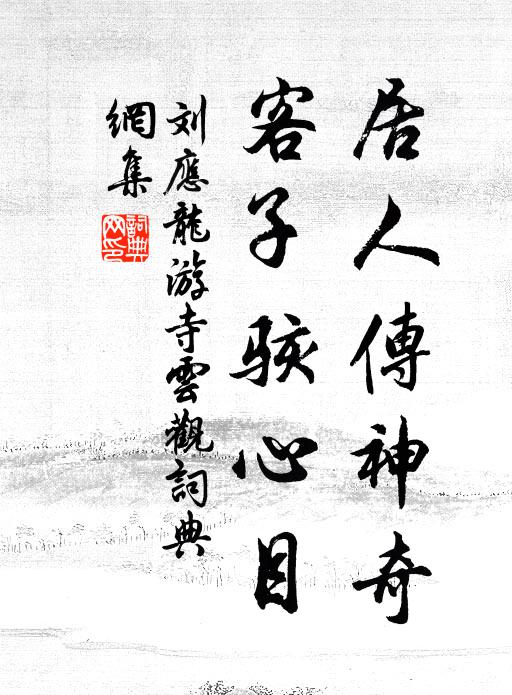 居人傳神奇
客子駭心目
刘應龍游寺雲觀詞典
網集
詞典
网印